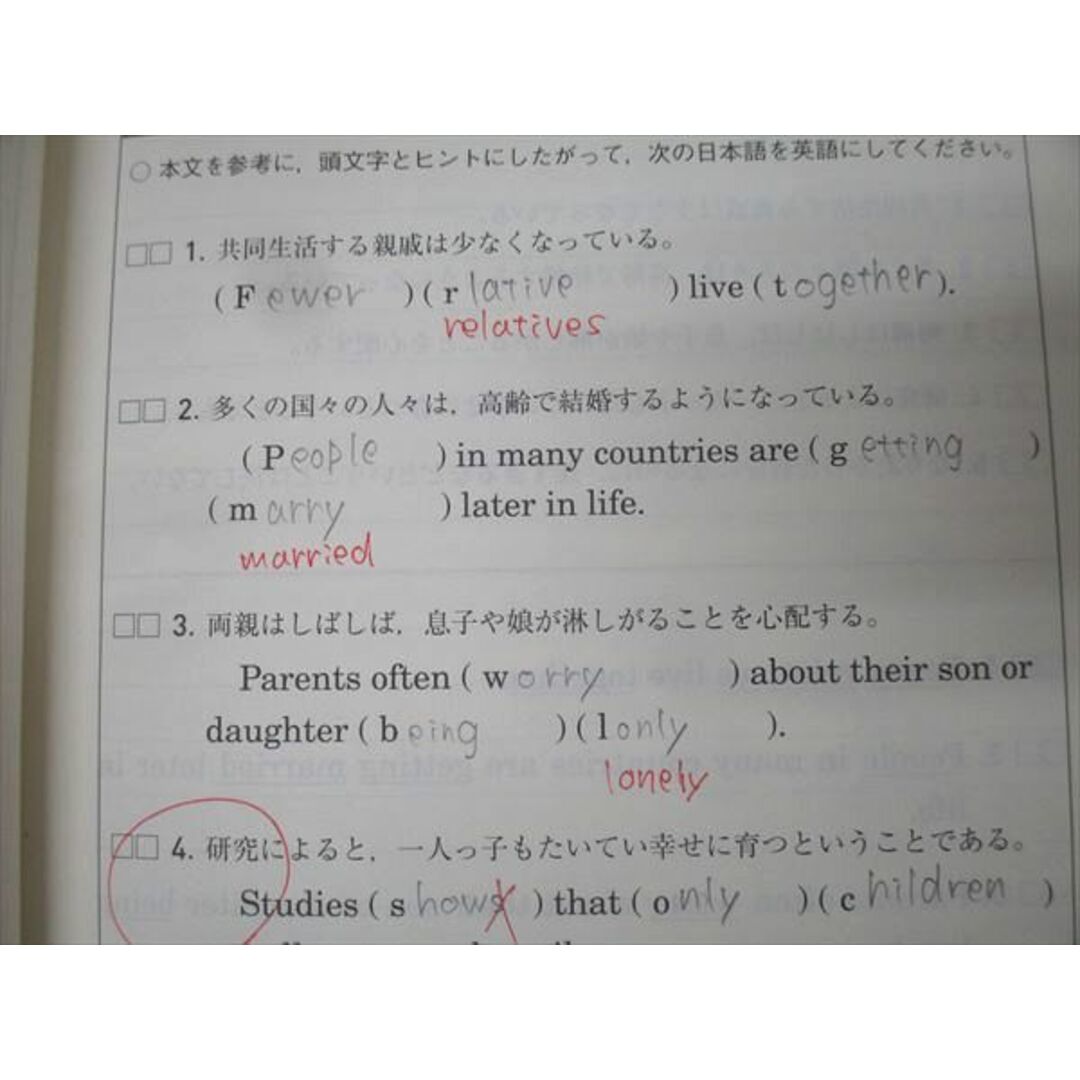 ○ 本文を参考に，頭文字とヒントにしたがって，次の日本語を英語にしてください。
□□ 1. 共同生活する親戚は少なくなっている。
( Fewer )( rlative ) live ( together ).
relatives
□□ 2. 多くの国々の人々は，高齢で結婚するようになっている。
( People ) in many countries are ( getting )
( marry ) later in life.
married
□□ 3. 両親はしばしば，息子や娘が淋しがることを心配する。
Parents often ( worry ) about their son or
daughter ( being )( lonly ).
lonely
□□ 4. 研究によると，一人っ子もたいてい幸せに育つということである。
Studies ( shows ) that ( only )( children )